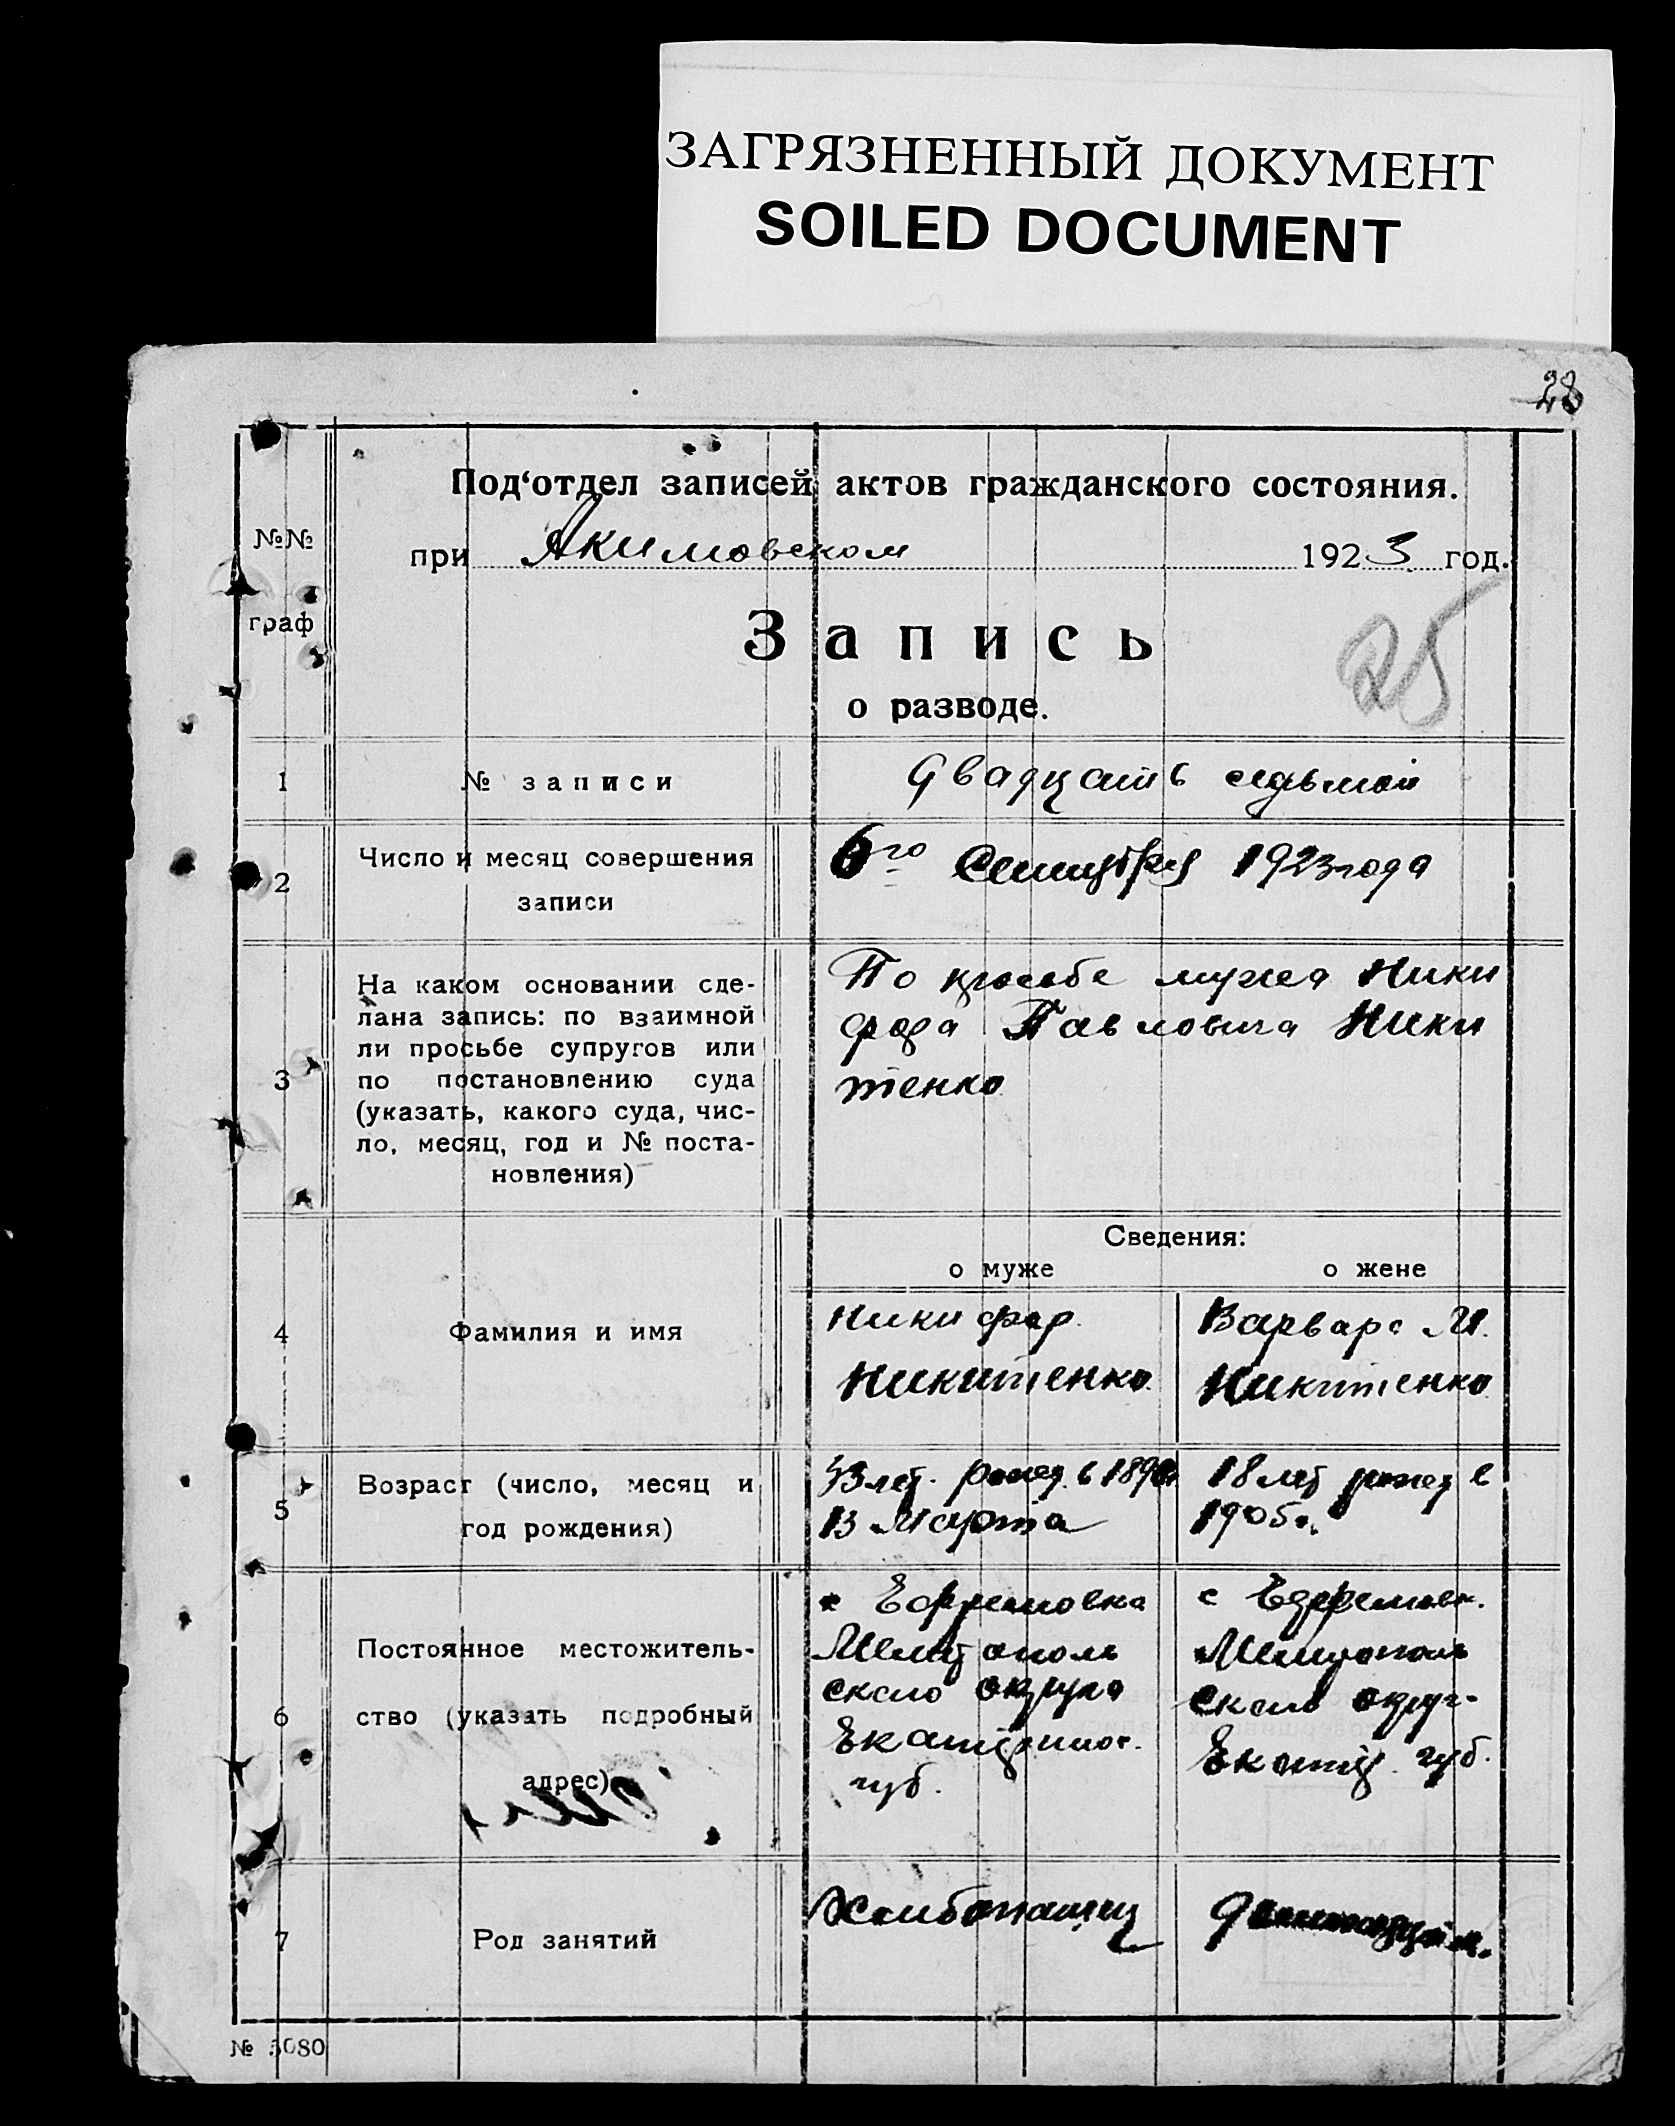 ЗАГРЯЗНЕННЫЙ ДОКУМЕНТ
SOILED DOCUMENT
28
Под‘отдел записей актов гражданского состояния.
№№
граф
при Акимовском 1923 год.
Запись
25
о разводе.
1 № записи Двадцать седьмой
2 Число и месяц совершения
записи
6го Сентября 1923 года
3 На каком основании сде-
лана запись: по взаимной
ли просьбе супругов или
по постановлению суда
(указать, какого суда, чис-
ло, месяц, год и № поста-
новления)
По прозьбе мужа Ники
фора Павловича Ники
тенко
Сведения:
о муже о жене
4 Фамилия и имя
Никифор
Никитенко
Варвара М.
Никитенко
5 Возраст (число, месяц и
год рождения)
33 лет. рожд. в 1890
13 Марта
18 лет рожд в
1905 г.
6 Постоянное местожитель-
ство (указать подробный
адрес)
с Ефремовка
Мелитополь
скаго округа
Екатеринос.
губ.
с Ефремовк.
Мелитополь
скаго округ.
Екатер. губ.
7 Род занятий
Хлебопашец
№ 5080